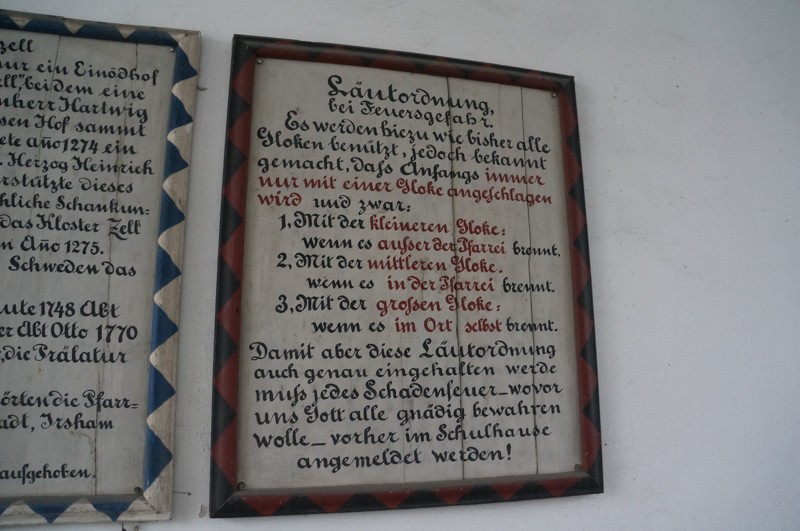 zell
nur ein Einödhof
ell", bei dem eine
nherr Hartwig
sen Hof sammt
ete año 1274 ein
. Herzog Heinrich
rstützte dieses
hliche Schankun=
das Kloster Zell
n Año 1275.
Schweden das
ute 1748 Abt
er Abt Otto 1770
, die Prälatur
örten die Pfarr=
adt, Irsham
aufgehoben.
Läutordnung,
bei Feuersgefahr.
Es werden hiezu wie bisher alle
Gloken benützt, jedoch bekannt
gemacht, daß Anfangs immer
nur mit einer Gloke angeschlagen
wird und zwar:
1, Mit der kleineren Gloke:
wenn es ausser der Pfarrei brennt.
2, Mit der mittleren Gloke.
wenn es in der Pfarrei brennt.
3, Mit der grossen Gloke:
wenn es im Ort selbst brennt.
Damit aber diese Läutordnung
auch genau eingehalten werde
muß jedes Schadenfeuer – wovor
uns Gott alle gnädig bewahren
wolle – vorher im Schulhause
angemeldet werden!